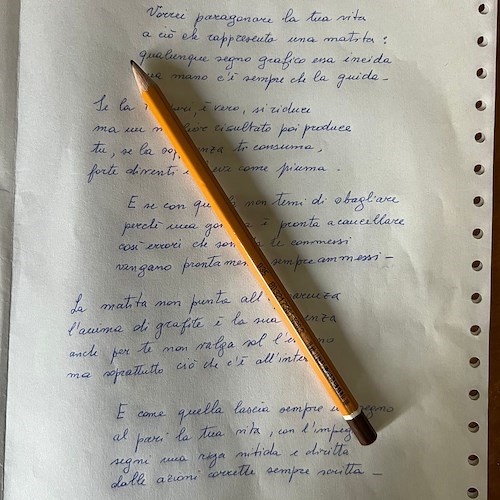 Vorrei paragonare la tua vita
a ciò che rappresenta una matita:
qualunque segno grafico essa incida
una mano c'è sempre che la guida –
Se la è vero, si riduce
ma un risultato poi produce
tu, se la ti consuma,
forte diventi come piuma.
E se con non temi di sbagliare
perché una è pronta a cancellare
così errori che le commessi
vangano sempre ammessi –
La matita non punta
l'anima di grafite è la sua
anche per te non valga sol
ma soprattutto ciò che c'è
E come quella lascia sempre un segno
al pari la tua vita, con
segni una riga nitida e diritta
dalle azioni corrette sempre scritta –